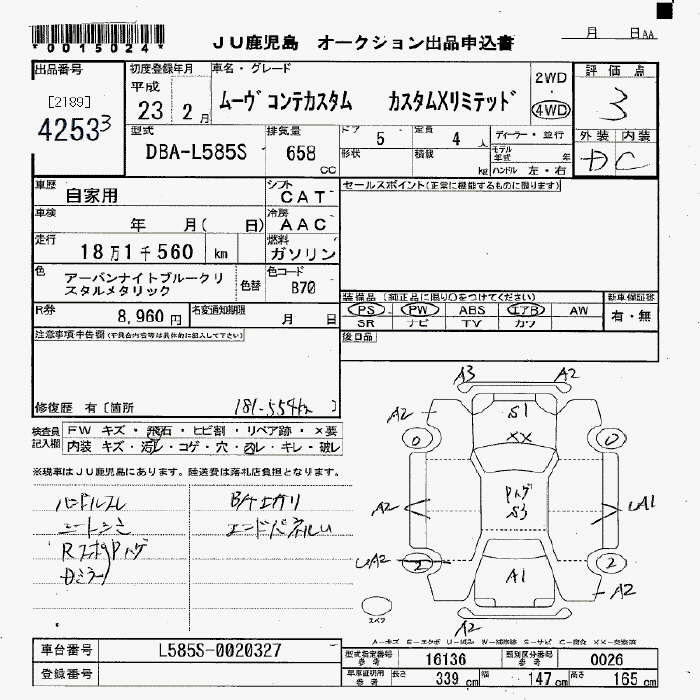 *0015024*
JU鹿児島 オークション出品申込書
月 日AA
出品番号
[2189]
42533
初度登録年月
平成
23年 2月
車名・グレード
ムーヴ コンテカスタム カスタムXリミテッド
2WD
・
4WD
評価点
3
外装 内装
D C
型式
DBA-L585S
排気量
658 cc
ドア 5
定員 4人
形状
積載 kg
ディーラー・並行
モデル年式 年
ハンドル 左・右
車歴
自家用
シフト
CAT
車検
年 月( 日)
冷房
AAC
走行
18万1千560 km
燃料
ガソリン
色
アーバンナイトブルークリスタルメタリック
色替
色コード
B70
R券
8,960円
名変通知期限
月 日
セールスポイント(正常に機能するものに限ります)
装備品(純正品に限り○をつけてください)
PS・PW・ABS・エアB・AW
SR・ナビ・TV・カワ
新車保証書
有・無
後日品
注意事項申告欄(不具合内容等は具体的に記入して下さい)
修復歴 有[箇所 ]
181-554km
検査員記入欄
FW キズ・飛石・ヒビ割・リペア跡・×要
内装 キズ・汚レ・コゲ・穴・スレ・キレ・破レ
※現車はJU鹿児島にあります。陸送費は落札店負担となります。
ハンドルスレ
シートシミ
RスポPハゲ
Dミラー
エンドパネルU
A3 A2
A2
S1
XX
0 0
A2
Pハゲ
S3
UA1
UA2
2 2
A1
A2
A2
スペア
車台番号
L585S-0020327
登録番号
型式指定番号 参考
16136
類別区分番号 参考
0026
車庫証明用 参考
長さ 339 cm 幅 147 cm 高さ 165 cm